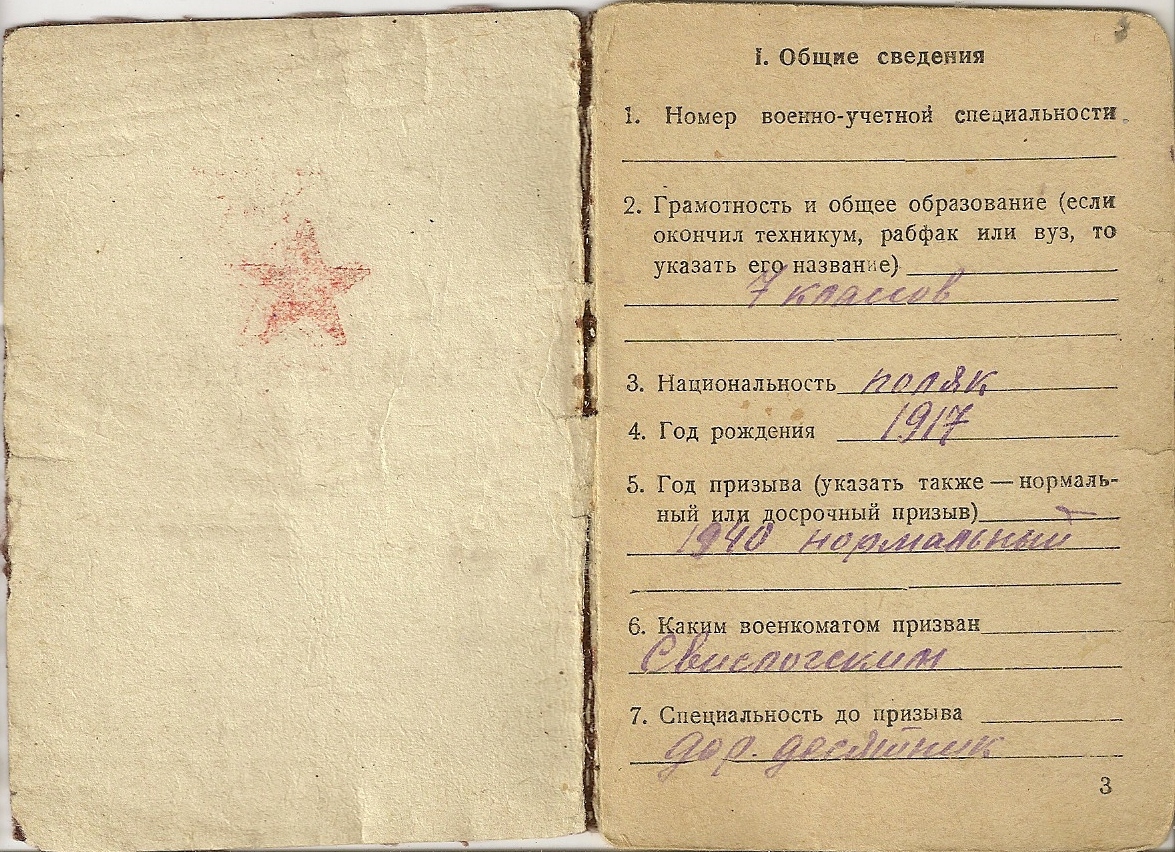 I. Общие сведения
1. Номер военно-учетной специальности
2. Грамотность и общее образование (если
окончил техникум, рабфак или вуз, то
указать его название)
7 классов
3. Национальность поляк
4. Год рождения 1917
5. Год призыва (указать также — нормаль-
ный или досрочный призыв)
1940 нормальный
6. Каким военкоматом призван
Свислочским
7. Специальность до призыва
дор. десятник
3